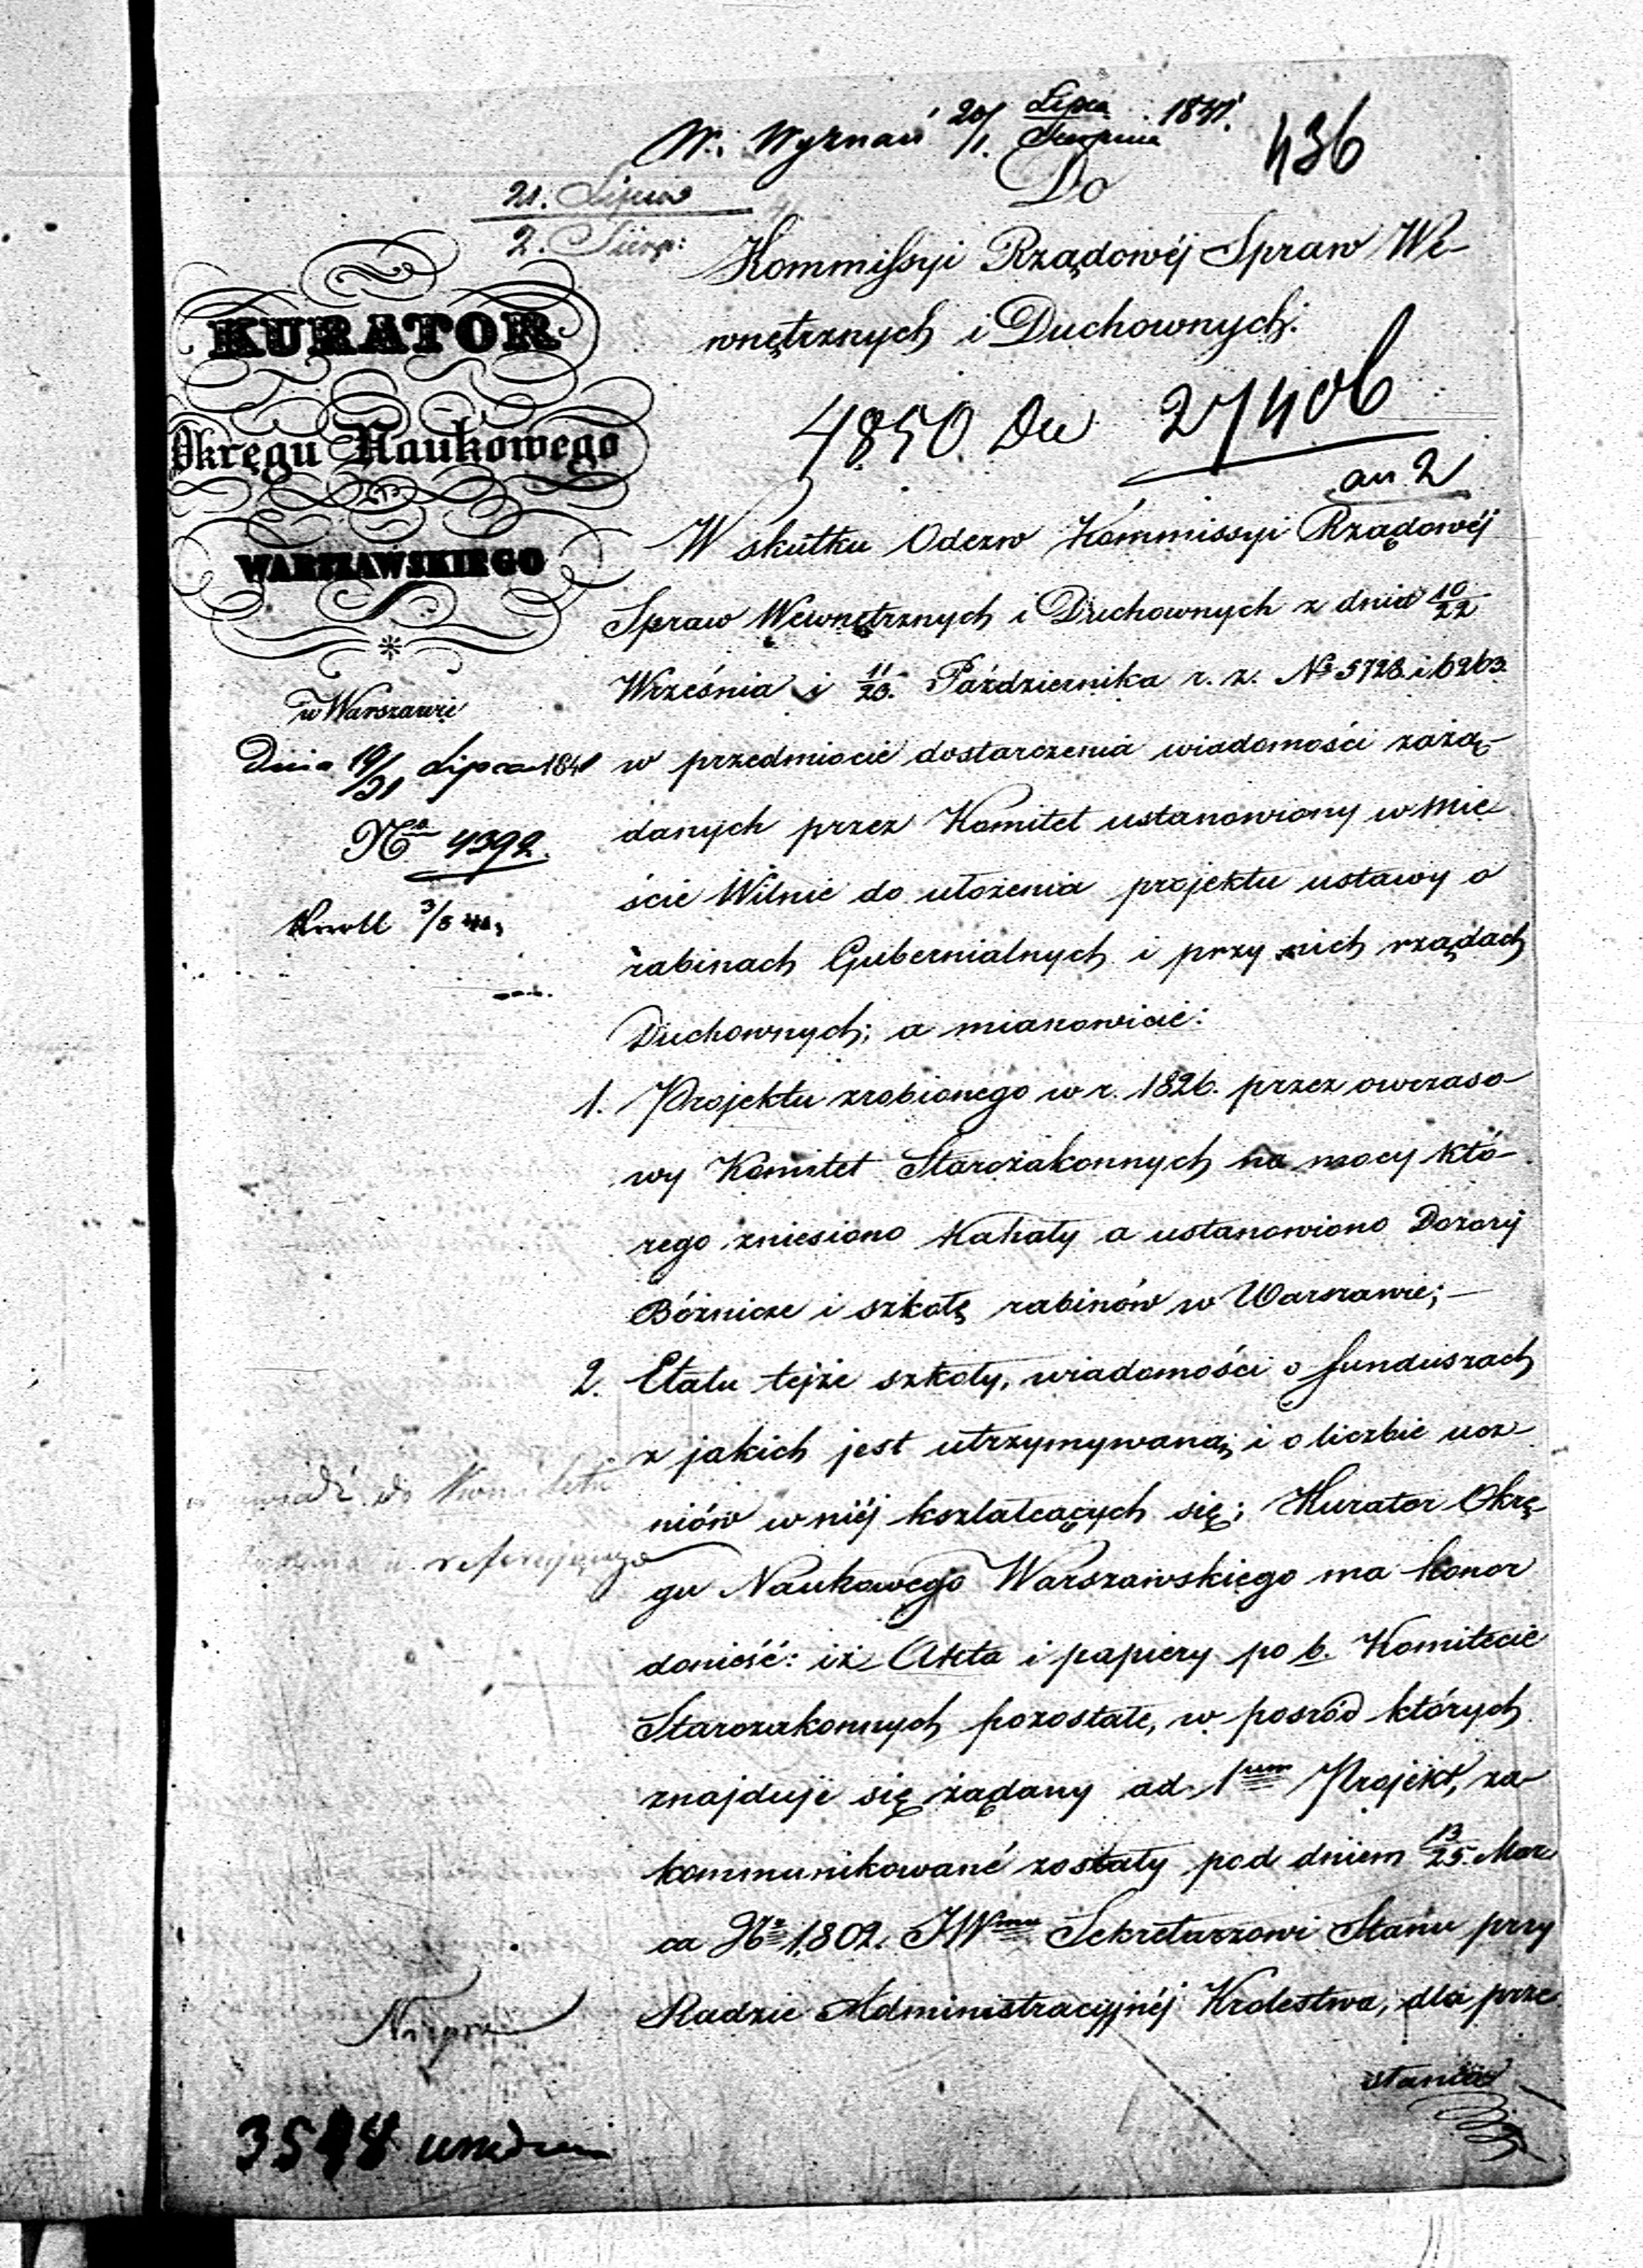 W. Wyznań 20/1. Lipca/Sierpnia 1841.
436
21. Lipca
2. Sierp:
Do
Kommissyi Rządowéj Spraw We-
wnętrznych i Duchownych.
KURATOR
Okręgu Naukowego
WARSZAWSKIEGO
w Warszawie
Dnia 19/31 Lipca 1841
No 4392.
3/8 41.
4850. Du 27406
an 2
W skutku Odezw Kommissyi Rządowéj
Spraw Wewnętrznych i Duchownych z dnia 10/22
Września i 11/23. Października r. z. No 5728. i 6263.
w przedmiocie dostarczenia wiadomości zażą-
danych przez Komitet ustanowiony w mie
ście Wilnie do ułożenia projektu ustawy o
rabinach Gubernialnych i przy nich rządach
Duchownych; a mianowicie:
1. Projektu zrobionego w r. 1826. przez owczaso-
wy Komitet Starozakonnych na mocy któ-
rego zniesiono Kahały a ustanowiono Dozory
Bóżnicze i szkołę rabinów w Warszawie; —
2. Etatu tejże szkoły, wiadomości o funduszach
z jakich jest utrzymywaną, i o liczbie ucz-
niów w niéj kształcących się; Kurator Okrę-
gu Naukowego Warszawskiego ma honor
donieść: iż Akta i papiery po b. Komitecie
Starozakonnych pozostałe, w pośród których
znajduje się żądany ad 1um Projekt, za-
kommunikowané zostały pod dniem 13/25. Mar
ca No 1,802. JWmu Sekretarzowi Stanu przy
Radzie Administracyjnéj Krolestwa, dla prze
słania
do Komitetu
referującego
3548